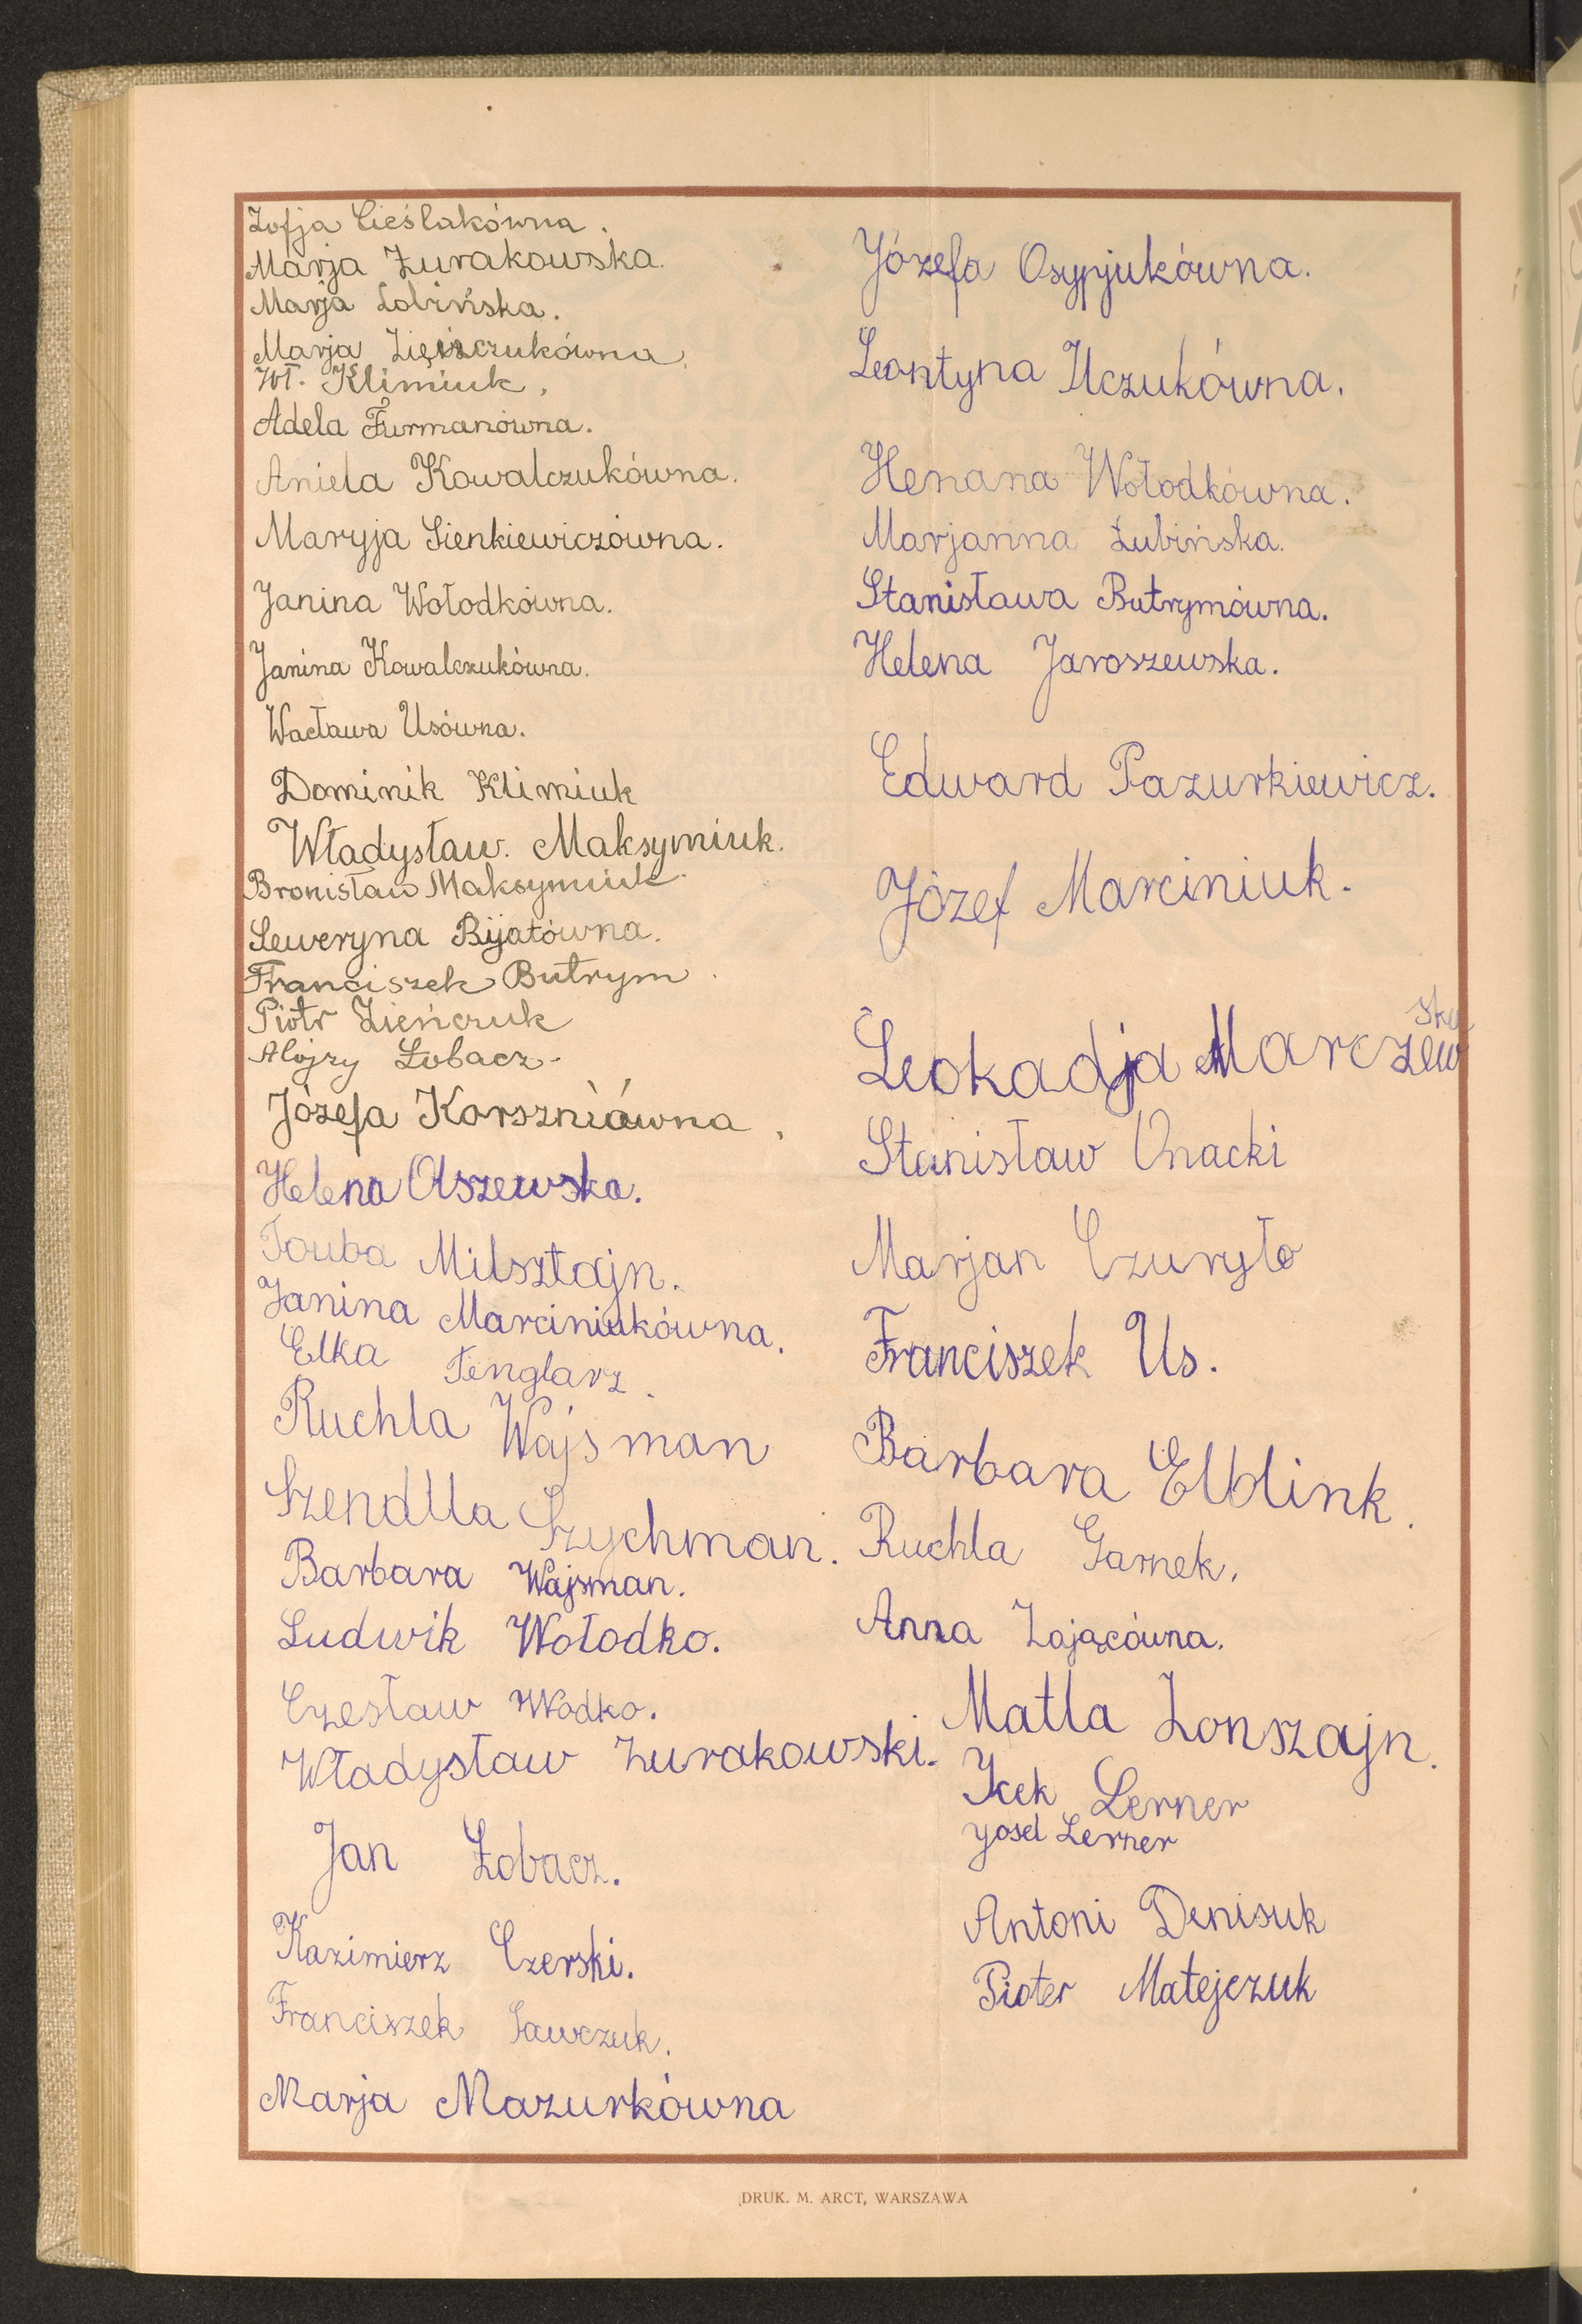 Zofja Cieślakówna.
Marja Żurakowska.
Marja Łobińska.
Marja Zieńczukówna.
Wł. Klimiuk.
Adela Furmanówna.
Aniela Kowalczukówna.
Maryja Sienkiewiczówna.
Janina Wołodkówna.
Janina Kowalczukówna.
Wacława Usówna.
Dominik Klimiuk
Władysław. Maksymiuk.
Bronisław Maksymiuk.
Seweryna Bijatówna.
Franciszek Butrym.
Piotr Zieńczuk
Alojzy Łobacz.
Józefa Korszniówna.
Helena Olszewska.
Touba Milsztajn.
Janina Marciniukówna.
Elka Tenglarz.
Ruchla Wajsman
Szendlla Szychman.
Barbara Wajsman.
Ludwik Wołodko.
Czesław Wodko.
Władysław Żurakowski.
Jan Łobacz.
Kazimierz Czerski.
Franciszek Sawczuk.
Marja Mazurkówna
Józefa Osypjukówna.
Leontyna Ilczukówna.
Henana Wołodkówna.
Marjanna Łubińska.
Stanisława Butrymówna.
Helena Jaroszewska.
Edward Pazurkiewicz.
Józef Marciniuk.
Leokadja Marczewska
Stanisław Unacki
Marjan Czuryło
Franciszek Us.
Barbara Elblink.
Ruchla Garnek.
Anna Zającówna.
Matla Zonszajn.
Icek Lerner
Yosel Lerner
Antoni Denisuk
Pioter Matejczuk
DRUK. M. ARCT, WARSZAWA